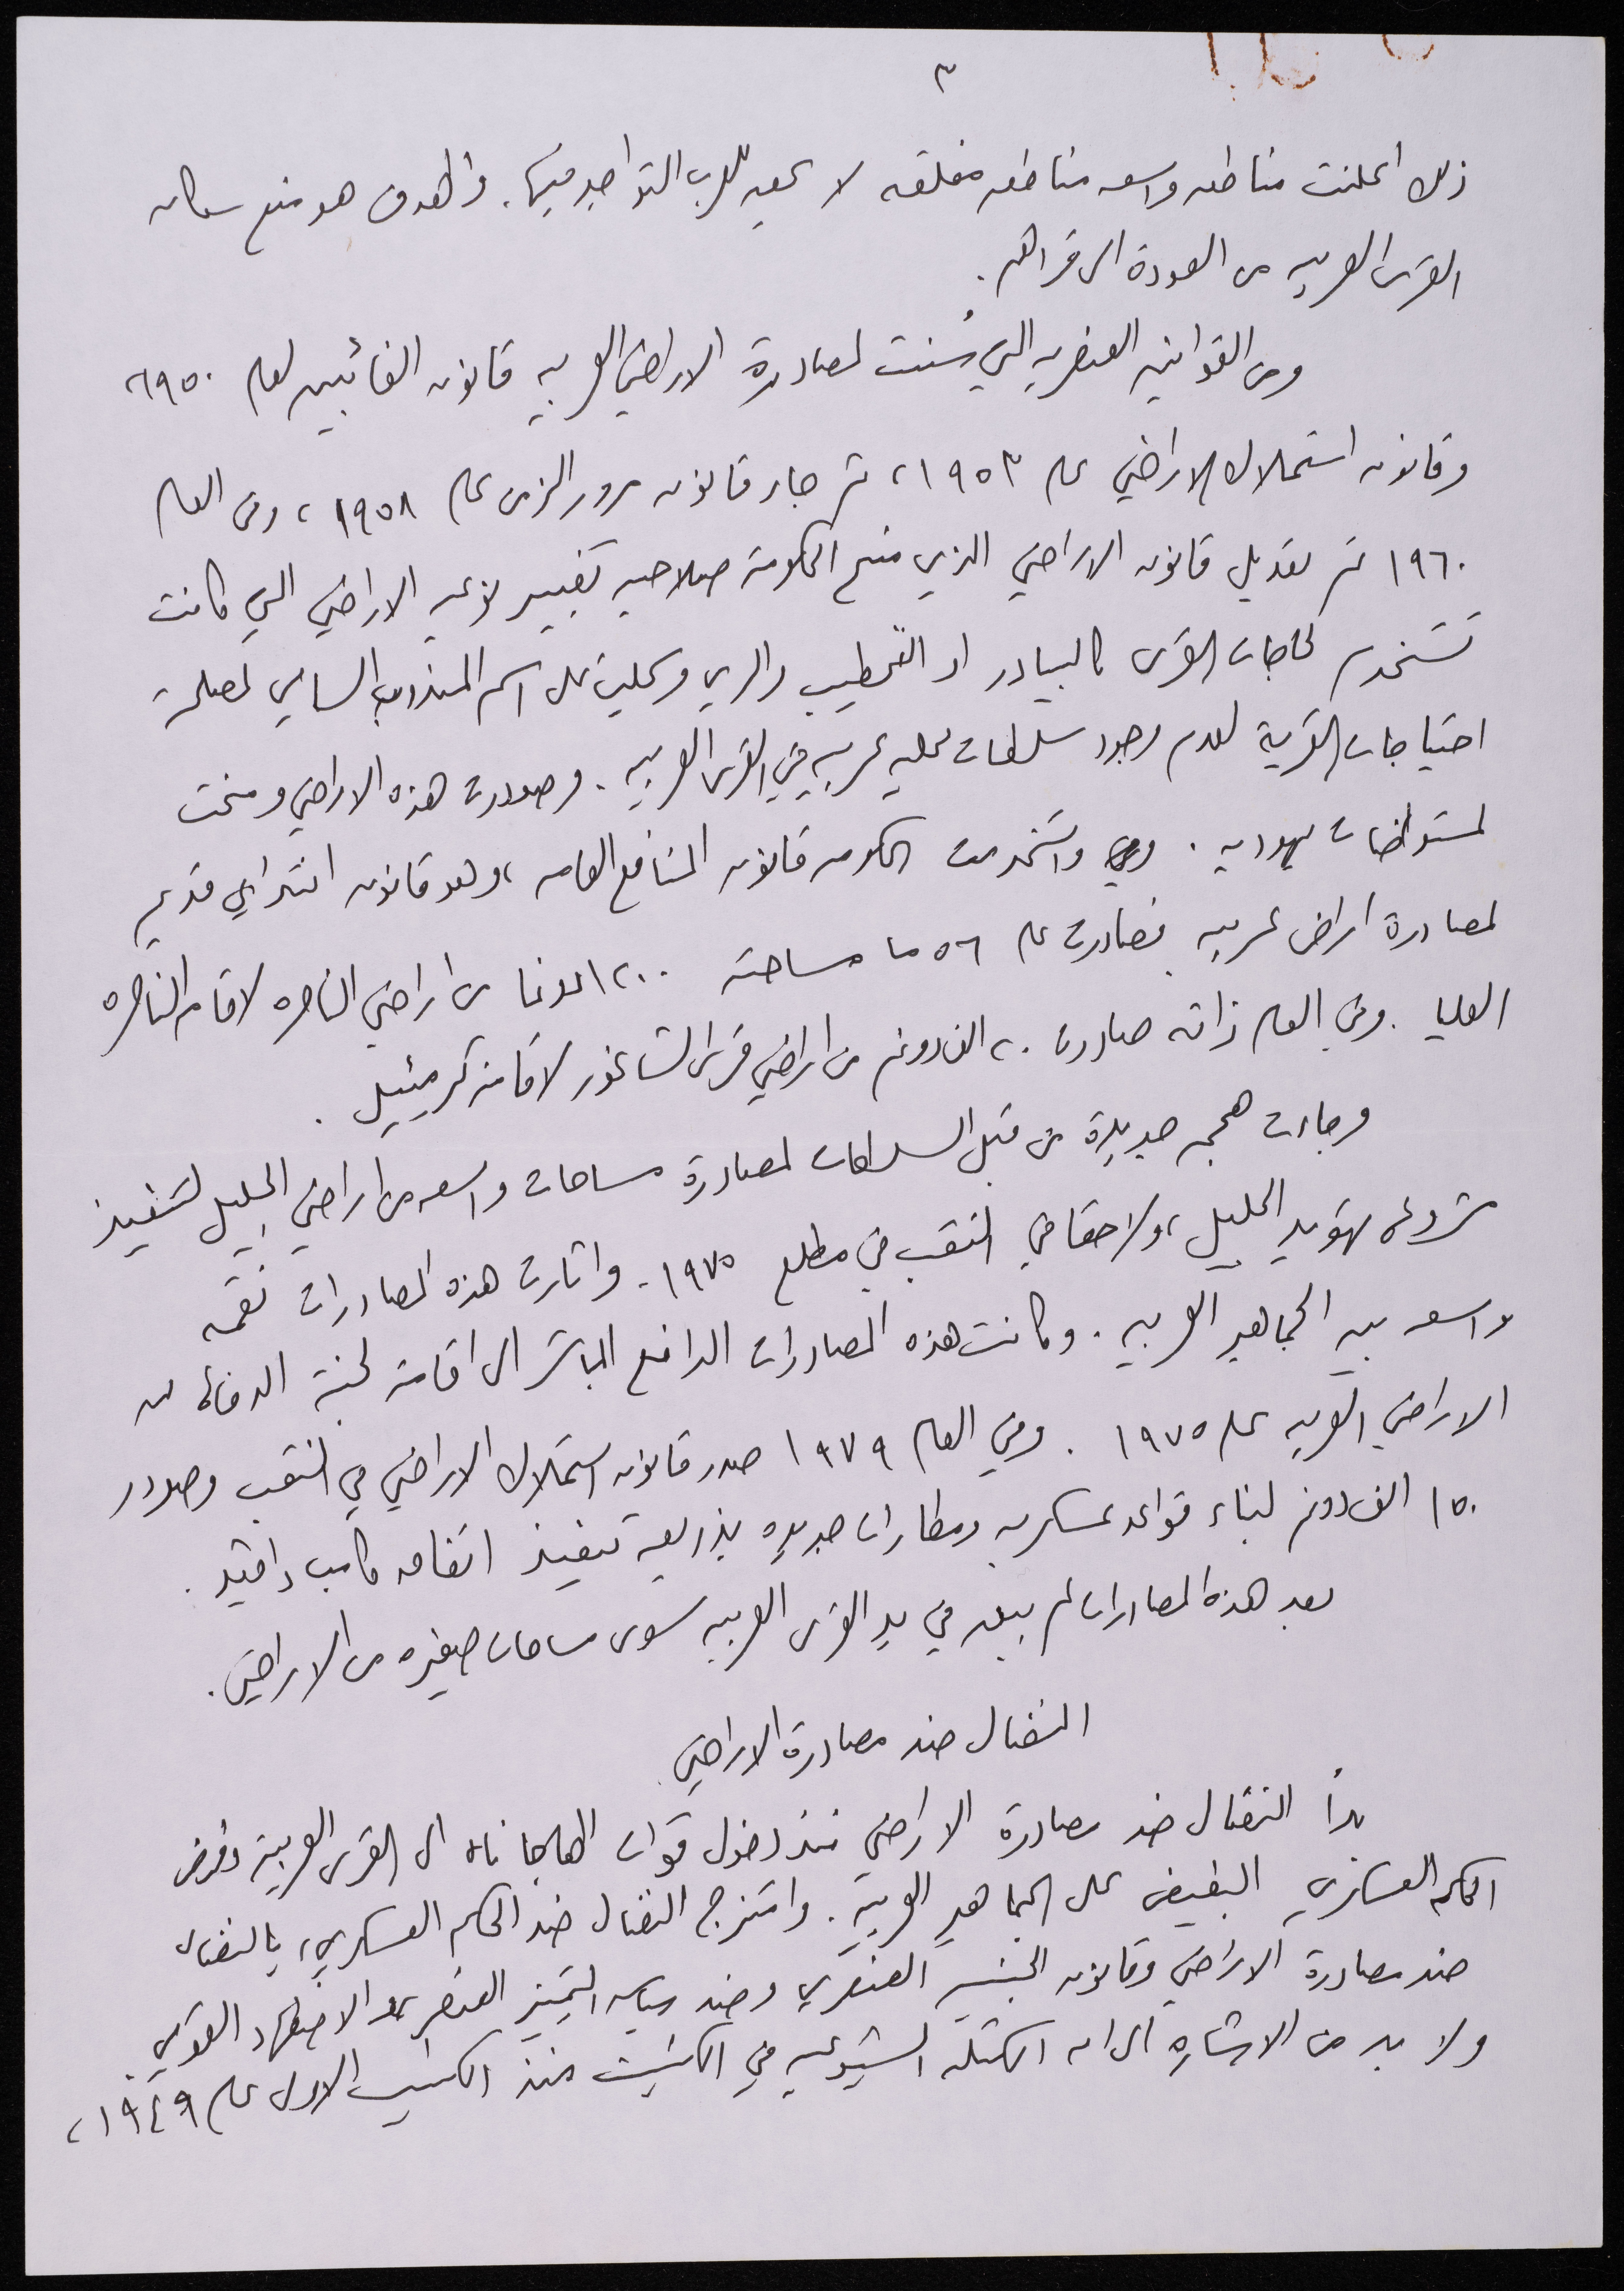 ٣
ذلك اعلنت مناطق واسعه مناطق مغلقه لا يحق للعرب التواجد فيها. والهدف هو منع سكان
القرى العربيه من العودة الى قراهم.
ومن القوانين العنصريه التي سُنت لمصادرة الاراضي العربيه قانون الغائبين لعام ١٩٥٠،
وقانون استملاك الاراضي عام ١٩٥٣، ثم جاء قانون مرور الزمن عام ١٩٥٨، وفي العام
١٩٦٠ تم تعديل قانون الاراضي الذي منح الحكومة صلاحيه تغيير نوعيه الاراضي التي كانت
تستخدم لحاجات القرى كالبيادر او التحطيب والري وسجلت على اسم المندوب السامي لمصلحة
احتياجات القرية لعدم وجود سلطات محليه عربيه في القرى العربيه. وصودرت هذه الاراضي ومنحت
لمستوطنات يهوديه. واستخدمت الحكومه قانون المنافع العامه، وهو قانون انتدابي قديم
لمصادرة اراض عربيه فصادرت عام ٥٦ ما مساحته ١٢٠٠ دونما من اراضي الناصره لاقامة الناصره
العليا. وفي العام ذاته صادرت ٢٠ الف دونم من اراضي قرى الشاغور لاقامة كرميئيل.
وجاءت هجمه جديدة من قبل السلطات لمصادرة مساحات واسعه من اراضي الجليل لتنفيذ
مشروع تهويد الجليل، ولاحقا في النقب في مطلع ١٩٧٥. واثارت هذه المصادرات نقمه
واسعه بين الجماهير العربيه. وكانت هذه المصادرات الدافع المباشر الى اقامة لجنة الدفاع عن
الاراضي العربيه عام ١٩٧٥. وفي العام ١٩٧٩ صدر قانون استملاك الاراضي في النقب وصودر
١٥٠ الف دونم لبناء قواعد عسكريه ومطارات جديده بذريعة تنفيذ اتفاق كامب دافيد.
بعد هذه المصادرات لم يبق في يد القرى العربيه سوى مساحات صغيره من الاراضي.
النضال ضد مصادرة الاراضي
بدأ النضال ضد مصادرة الاراضي منذ دخول قوات الهاجاناه الى القرى العربية وفرض
الحكم العسكري البغيض على الجماهير العربية. وامتزج النضال ضد الحكم العسكري، بالنضال
ضد مصادرة الاراضي وقانون الجنسيه العنصري وضد سياسه التمييز العنصري والاضطهاد القومي.
ولا بد من الاشاره الى ان الكتله الشيوعيه في الكنيست منذ الكنيست الاول عام ١٩٤٩،